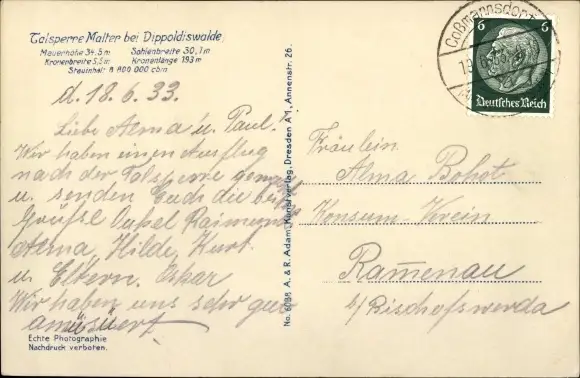 Talsperre Malter bei Dippoldiswalde
Mauerhöhe 34,5 m Sohlenbreite 30,1 m
Kronenbreite 5,5 m Kronenlänge 193 m
Stauinhalt 8 800 000 cbm
d. 18.6.33.
Liebe Alma u. Paul.
Wir haben einen Ausflug
nach der Talsperre gemacht
u. senden Euch die besten
Grüße Onkel Raimund
Alma, Hilde, Kurt
u. Eltern. Oskar
Wir haben uns sehr gut
amüsiert
Echte Photographie
Nachdruck verboten.
No. 6088 A. & R. Adam, Kunstverlag, Dresden A 1, Annenstr. 26.
Coßmannsdorf
6 6
Deutsches Reich
Fräulein
Alma Bohot
Konsum-Verein
Ram̅enau
b/Bischofswerda